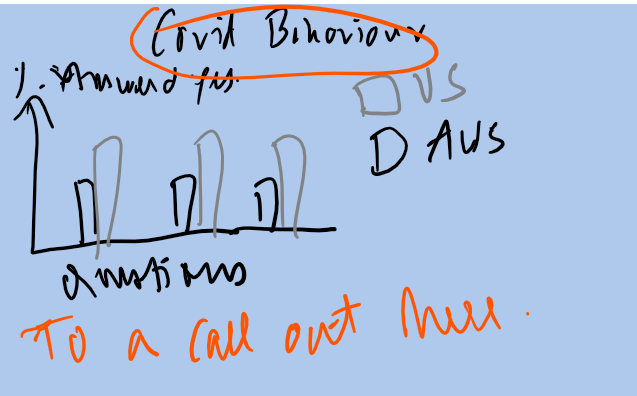 Covid Behaviour
%. Answered yes.
US
AUS
Questions
To a call out here.